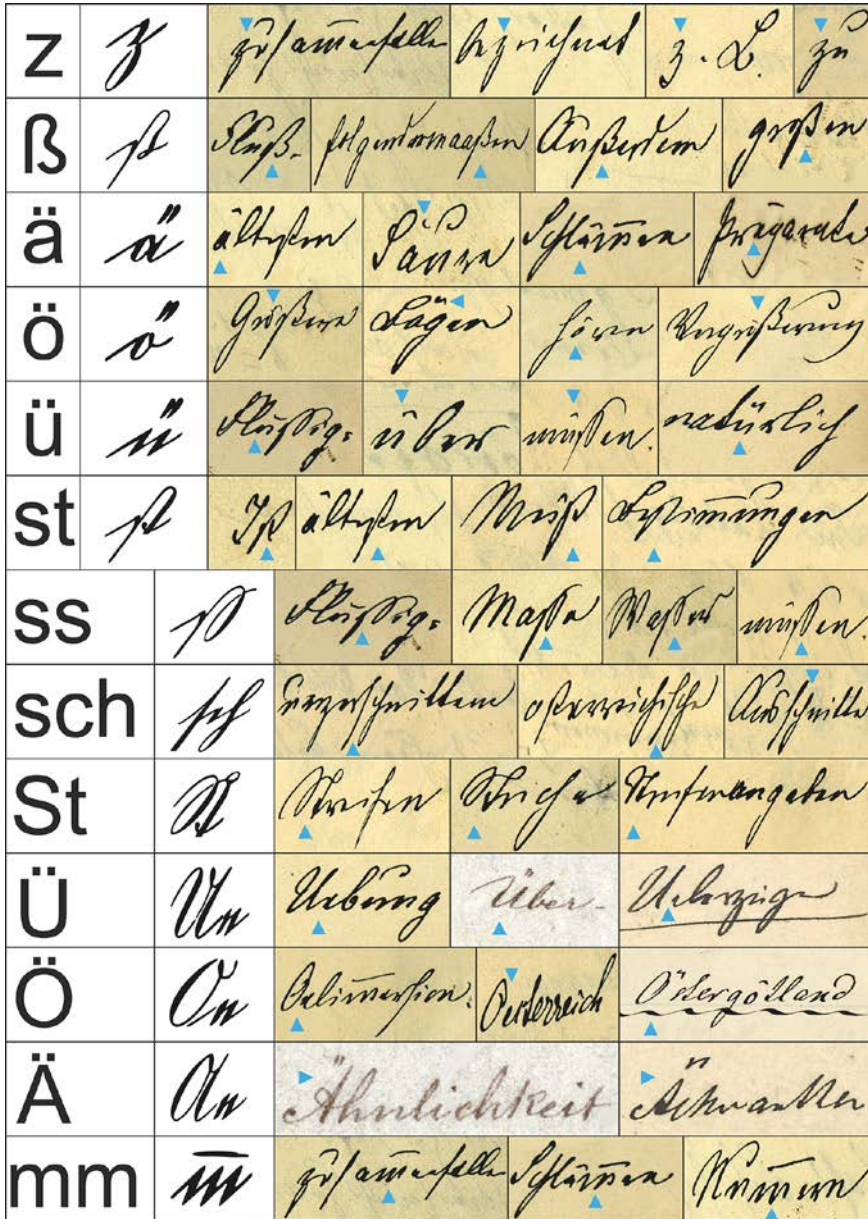 z z zusammenfallen bezeichnet z. B. zu
ß ß Fluß- folgendermaaßen Außerdem großen
ä ä ältesten Säure Schlämmen Präparate
ö ö Größere Bögen hören Vergrößerung
ü ü Flüssig= über müssen. natürlich
st st Ist ältesten Meist Bestimmungen
ss ss Flüssig= Masse Wasser müssen.
sch sch unzerschnittenem österreichische Ausschnitte
St St Streifen Striche Stufenangaben
Ü Ue Uebung Über- Ueberzüge
Ö Oe Oelimmersion. Oesterreich Östergötland
Ä Ae Ähnlichkeit
mm m̅ zusam̅enfallen Schläm̅en Num̅ern